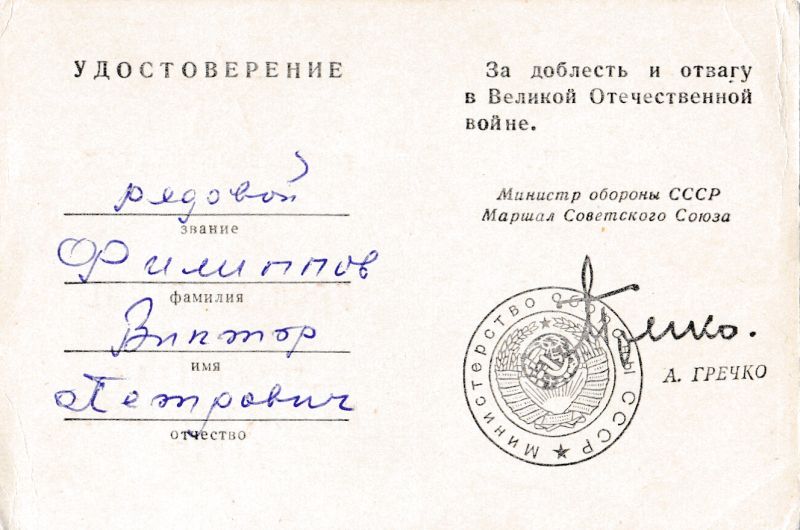 УДОСТОВЕРЕНИЕ
рядовой
звание
Филиппов
фамилия
Виктор
имя
Петрович
отчество
За доблесть и отвагу
в Великой Отечественной
войне.
Министр обороны СССР
Маршал Советского Союза
Гречко.
А. ГРЕЧКО
Министерство обороны СССР